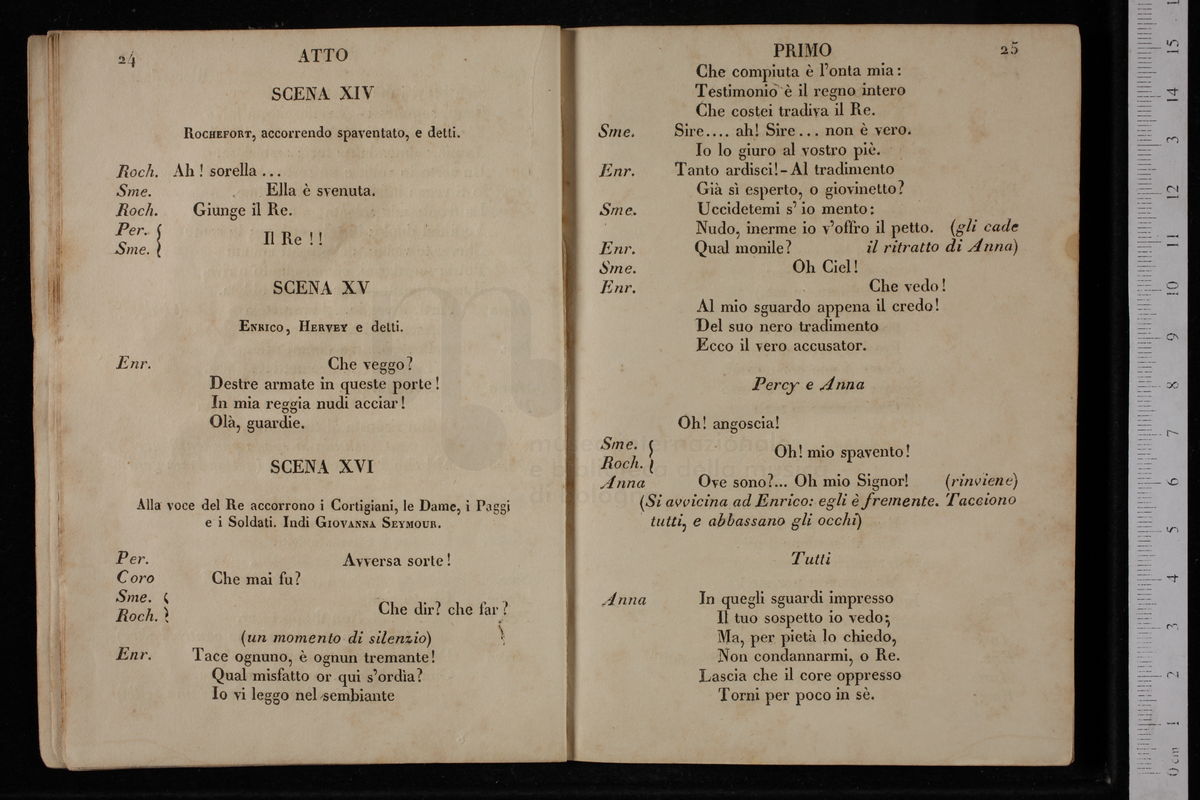 24
ATTO
SCENA XIV
ROCHEFORT, accorrendo spaventato, e detti.
Roch. Ah! sorella ...
Sme. Ella è svenuta.
Roch. Giunge il Re.
Per. {
Sme. { Il Re!!
SCENA XV
ENRICO, HERVEY e detti.
Enr. Che veggo?
Destre armate in queste porte!
In mia reggia nudi acciar!
Olà, guardie.
SCENA XVI
Alla voce del Re accorrono i Cortigiani, le Dame, i Paggi
e i Soldati. Indi GIOVANNA SEYMOUR.
Per. Avversa sorte!
Coro Che mai fu?
Sme. {
Roch. } Che dir? che far?
(un momento di silenzio)
Enr. Tace ognuno, è ognun tremante!
Qual misfatto or qui s'ordia?
Io vi leggo nel sembiante
PRIMO
25
Che compiuta è l'onta mia:
Testimonio è il regno intero
Che costei tradiva il Re.
Sme. Sire.... ah! Sire... non è vero.
Io lo giuro al vostro piè.
Enr. Tanto ardisci!- Al tradimento
Già sì esperto, o giovinetto?
Sme. Uccidetemi s' io mento:
Nudo, inerme io v'offro il petto. (gli cade
Enr. Qual monile? il ritratto di Anna)
Sme. Oh Ciel!
Enr. Che vedo!
Al mio sguardo appena il credo!
Del suo nero tradimento
Ecco il vero accusator.
Percy e Anna
Oh! angoscia!
Sme. {
Roch. } Oh! mio spavento!
Anna Ove sono?... Oh mio Signor! (rinviene)
(Si avvicina ad Enrico: egli è fremente. Tacciono
tutti, e abbassano gli occhi)
Tutti
Anna In quegli sguardi impresso
Il tuo sospetto io vedo;
Ma, per pietà lo chiedo,
Non condannarmi, o Re.
Lascia che il core oppresso
Torni per poco in sè.
0 cm 1 2 3 4 5 6 7 8 9 10 11 12 13 14 15